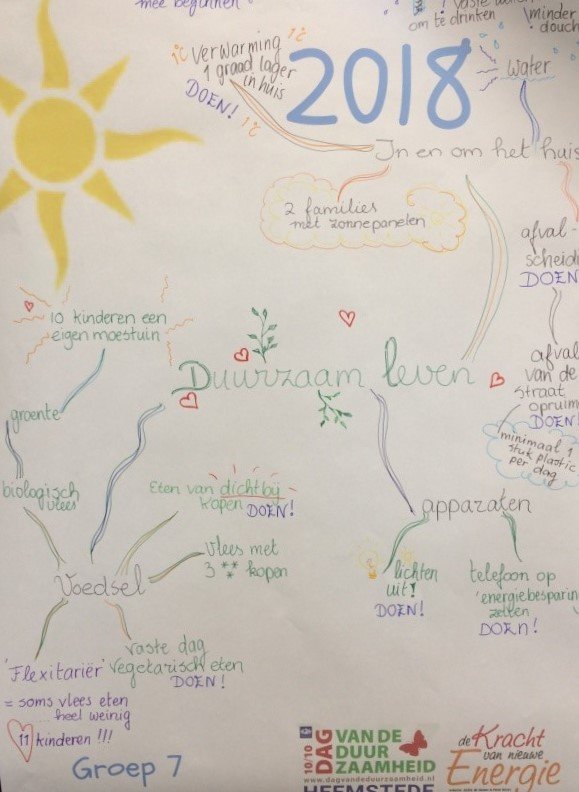 mee beginnen
vaste
om te drinken
minder
douch
1°C
1°C
verwarming
1 graad lager
in huis
DOEN!
1°C
2018
water
In en om het huis
2 families
met zonnepanelen
afval-
scheidi
DOEN
10 kinderen een
eigen moestuin
Duurzaam leven
afval
van de
straat
opruim
DOEN!
minimaal 1
stuk plastic
per dag
groente
biologisch
vlees
Eten van dichtbij
kopen DOEN!
apparaten
Vlees met
3 ** kopen
Voedsel
lichten
uit!
DOEN!
telefoon op
'energiebesparin
zetten
DOEN!
vaste dag
vegetarisch eten
DOEN!
'Flexitariër'
= soms vlees eten
... heel weinig
11 kinderen !!!
Groep 7
10/10
DAG
VAN DE
DUUR
ZAAMHEID
www.dagvandeduurzaamheid.nl
HEEMSTEDE
de Kracht
van nieuwe
Energie